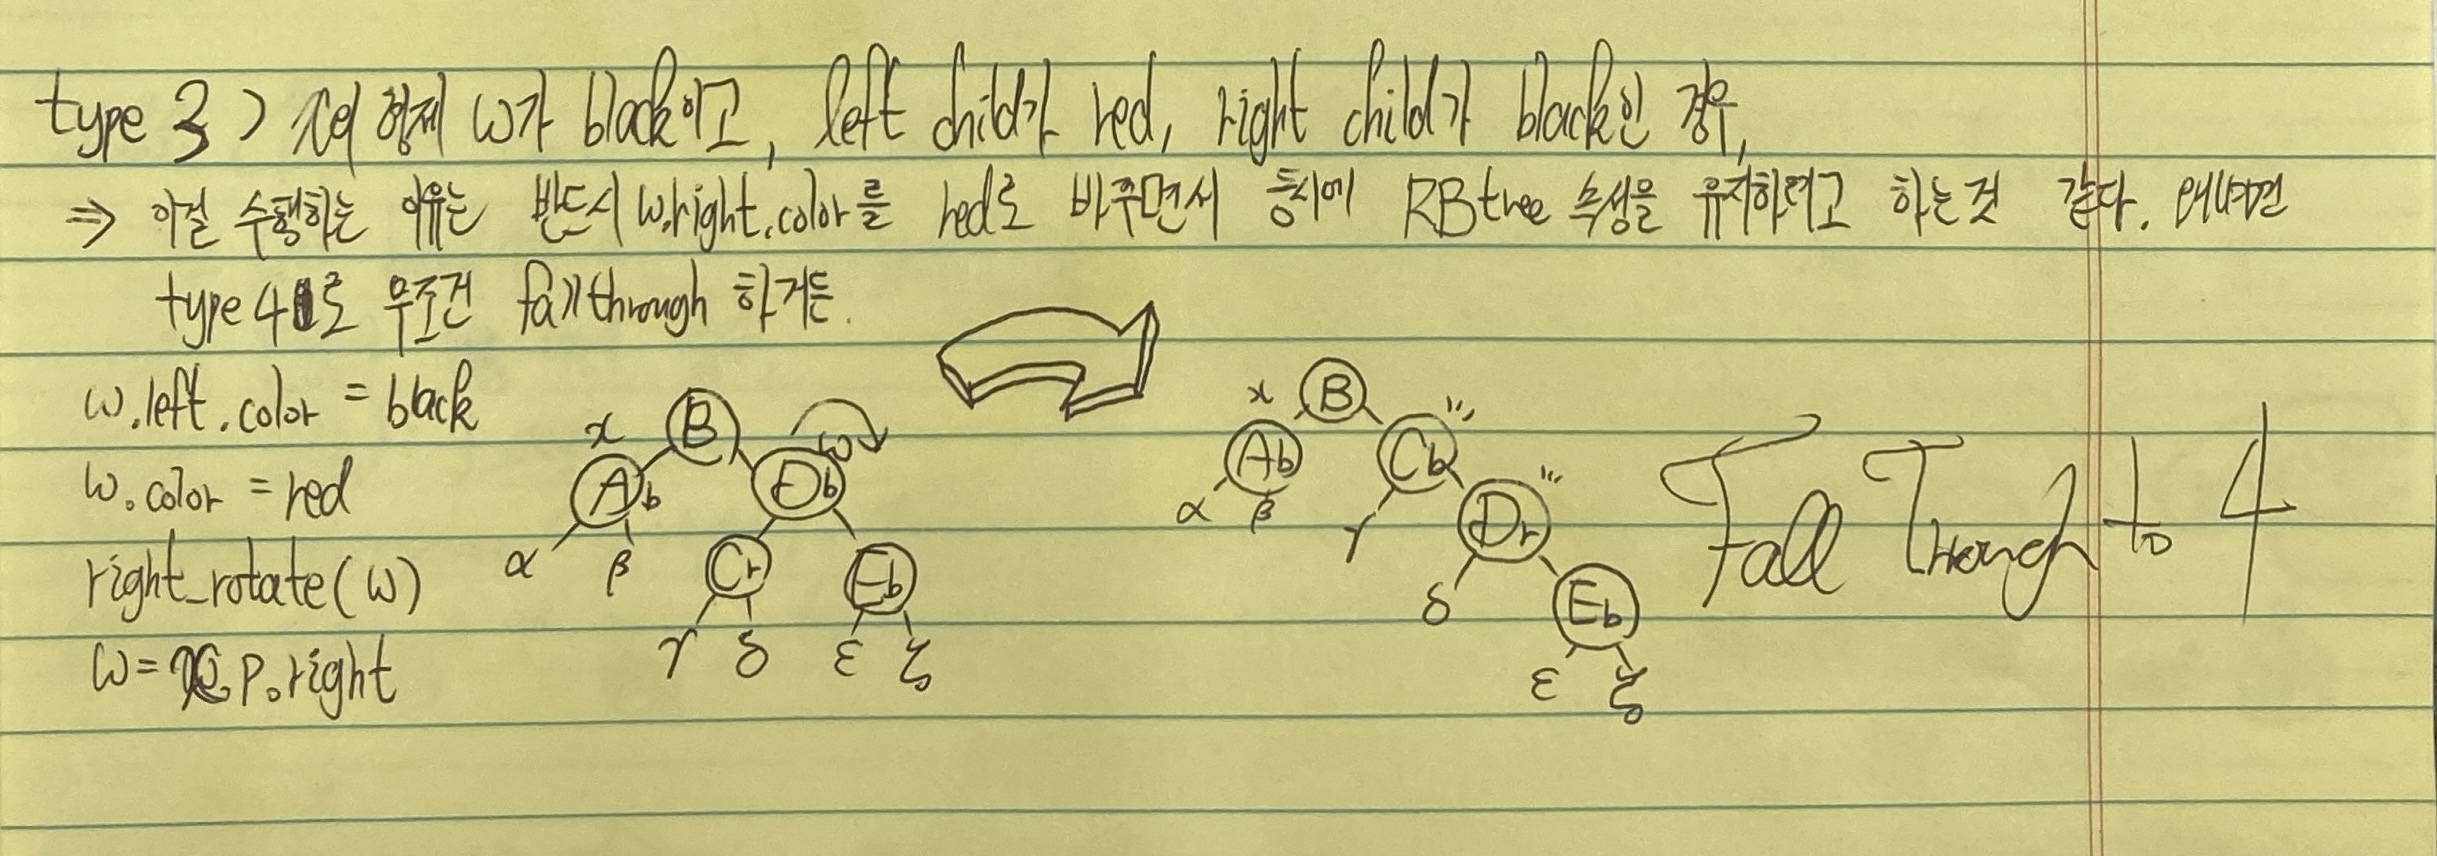 type 3 > x의 형제 w가 black이고, left child가 red, right child가 black인 경우,
⇒ 이걸 수행하는 이유는 반드시 w.right.color를 red로 바꾸면서 동시에 RBtree 속성을 유지하려고 하는것 같다. 왜냐면
type 4로 무조건 fallthrough 하거든.
w.left.color = black
w.color = red
right_rotate(w)
w = x.p.right
x B w
Ab Db
α β Cr Eb
γ δ ε ζ
x B
Ab Cb
α β γ Dr
δ Eb
ε ζ
Fall Through to 4